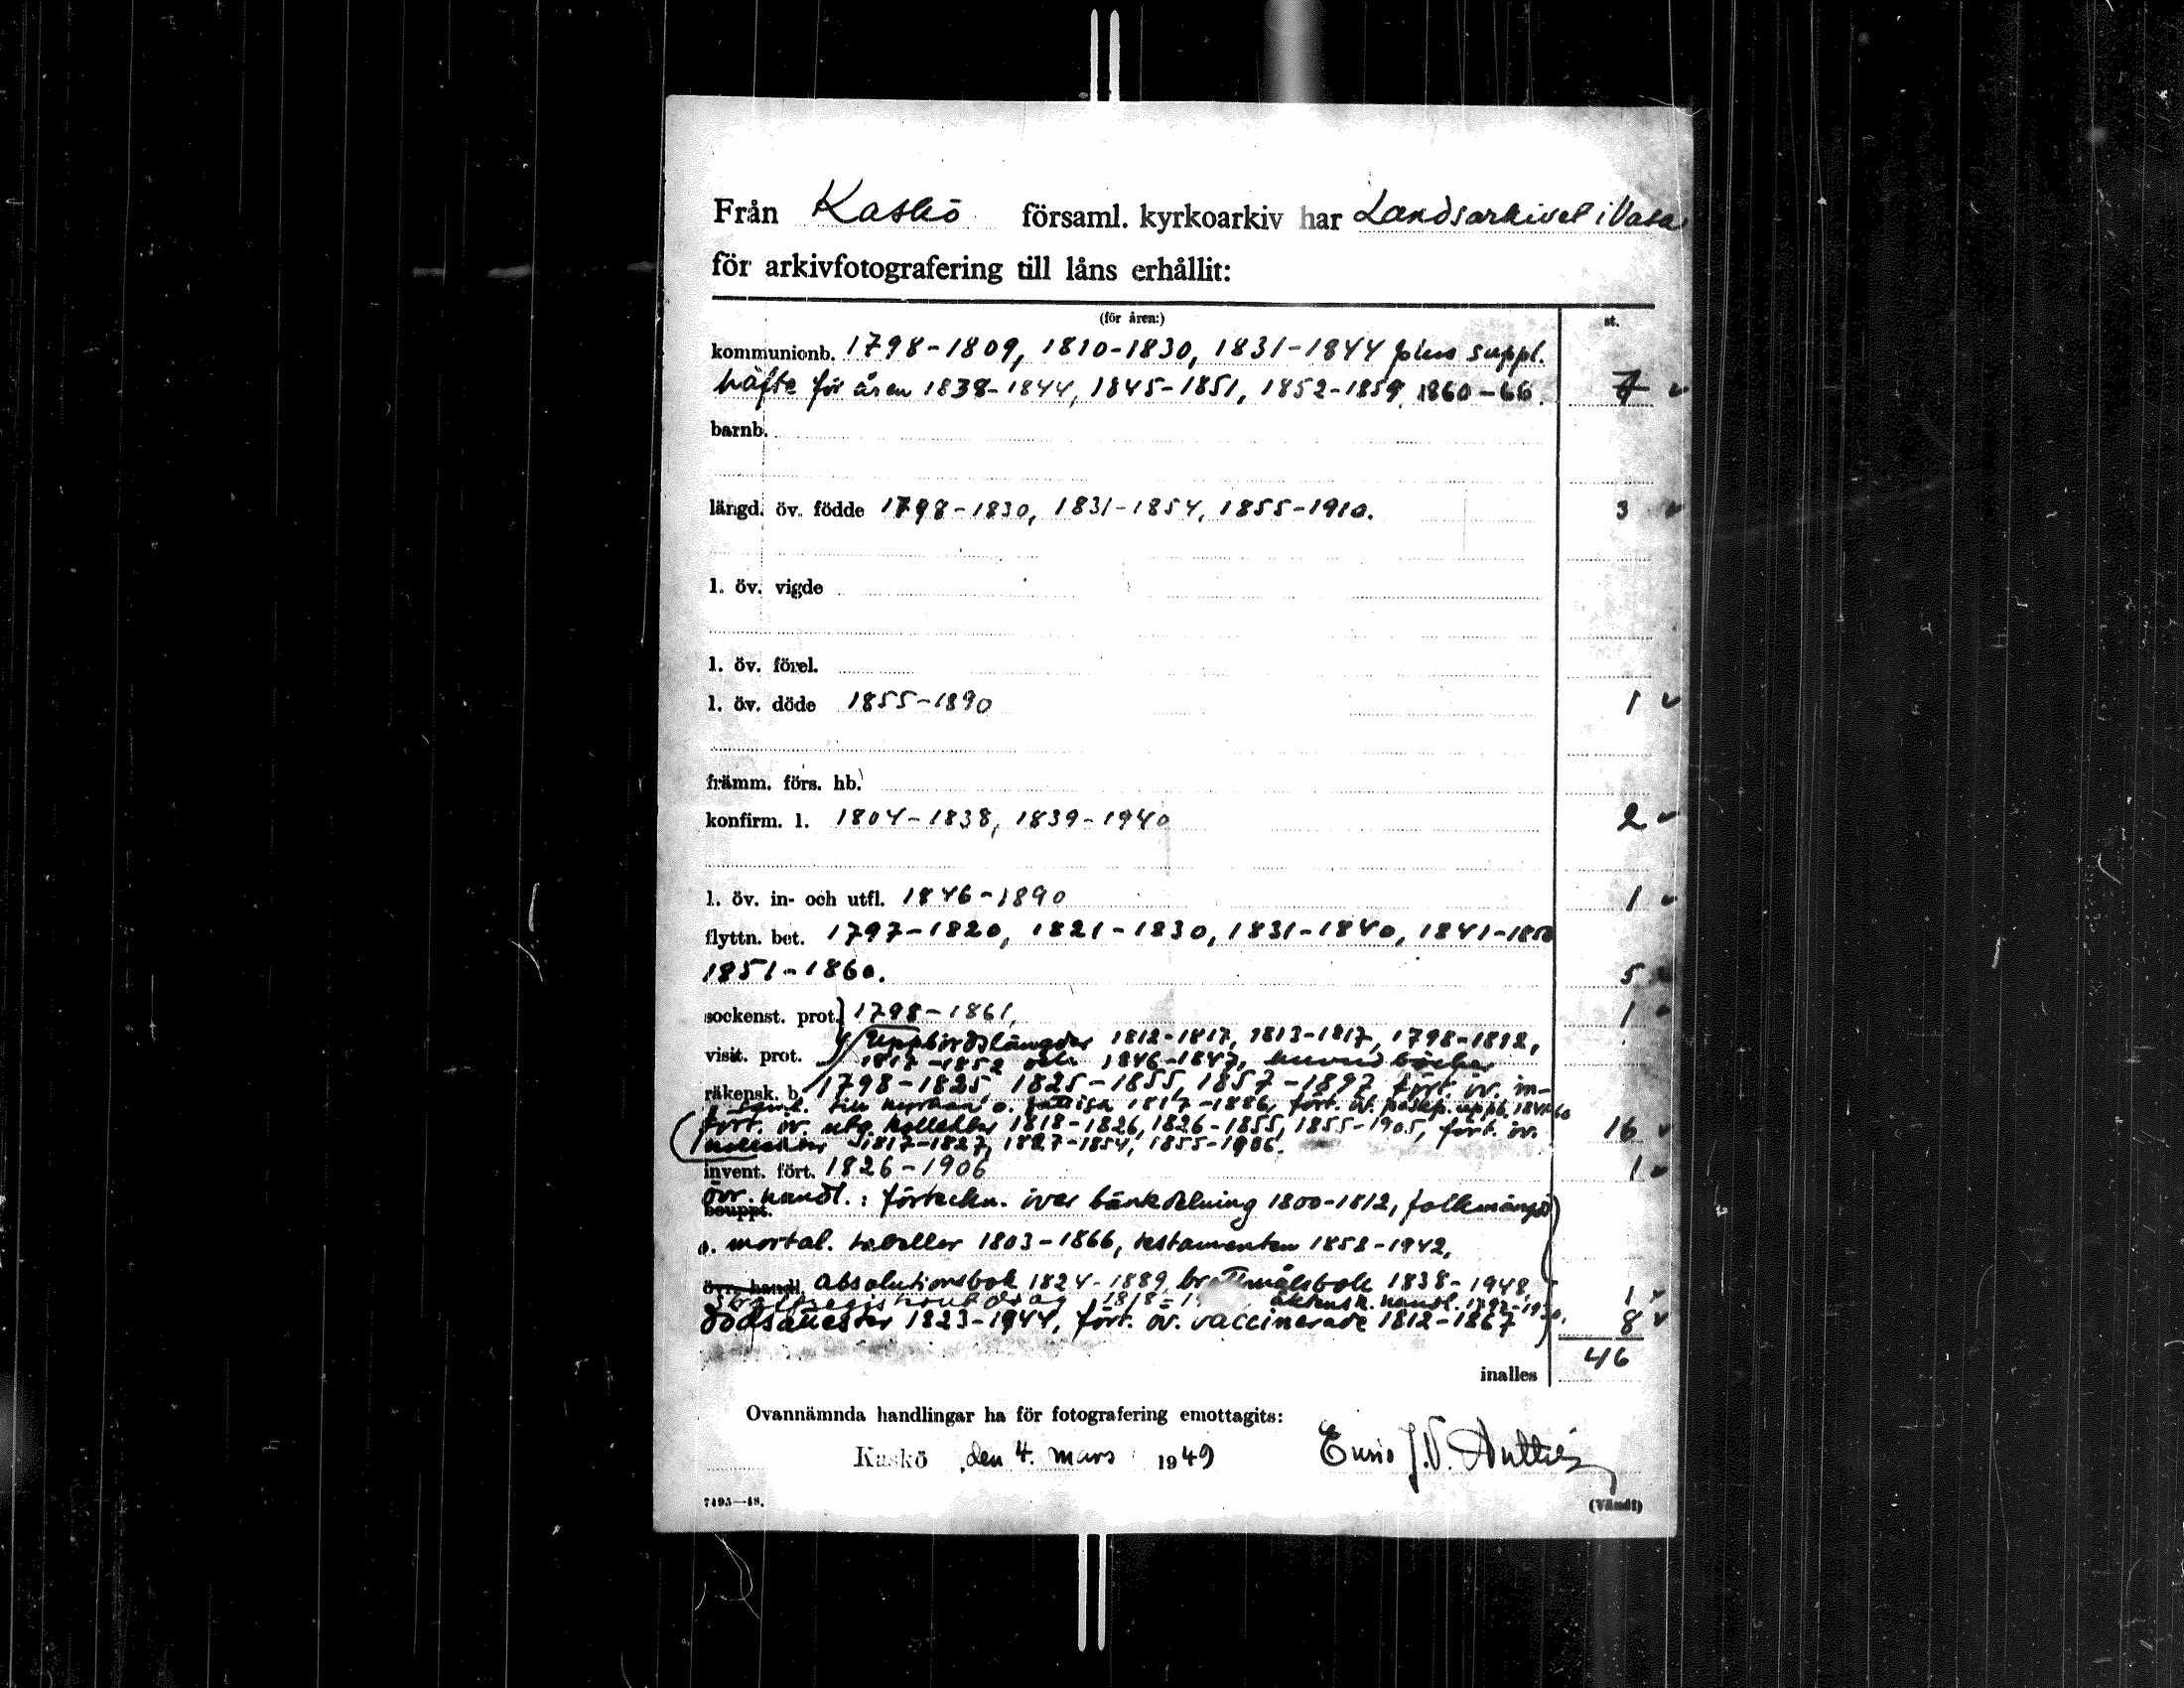 Från Kaskö församl. kyrkoarkiv har Landsarkivet i Vasa
för arkivfotografering till låns erhållit:
(för åren:) st.
kommunionb. 1798-1809, 1810-1830, 1831-1844 plus suppl.
häfte för åren 1838-1844, 1845-1851, 1852-1859, 1860-66. 7
barnb.
längd. öv. födde 1798-1830, 1831-1854, 1855-1910. 3
l. öv. vigde
l. öv. förel.
l. öv. döde 1855-1890 1
främm. förs. hb.
konfirm. l. 1804-1838, 1839-1940 2
l. öv. in- och utfl. 1846-1890 1
flyttn. bet. 1797-1820, 1821-1830, 1831-1840, 1841-1850
1851-1860. 5
sockenst. prot. 1798-1861, 1
Uppbördslängder 1812-1817, 1813-1817, 1798-1812,
visit. prot. 1817-1852 och 1846-1847,
räkensk. b. 1798-1825 1825-1855, 1857-1897 fört. öv. in-
till kyrkan o. fattiga 1817-1886, fört. öv.
fört. öv. utg. kollekter 1818-1826, 1826-1855, 1855-1905, fört. öv. 16
kollekter 1817-1827, 1827-1854, 1855-1906.
invent. fört. 1826-1906 1
övr. handl.: förteckn. över bänkdelning 1800-1812, folkmängd
beuppt.
o. mortal. tabeller 1803-1866, testamenten 1858-1942,
övr. handl. absolutionsbok 1824-1889, brottmålsbok 1838-1948, 1
handl.
dödsattester 1823-1944, fört. öv. vaccinerade 1812-1867 8
46
inalles
Ovannämnda handlingar ha för fotografering emottagits:
Kaskö den 4. mars 1949 J.V.
7495—48. (Vänd!)